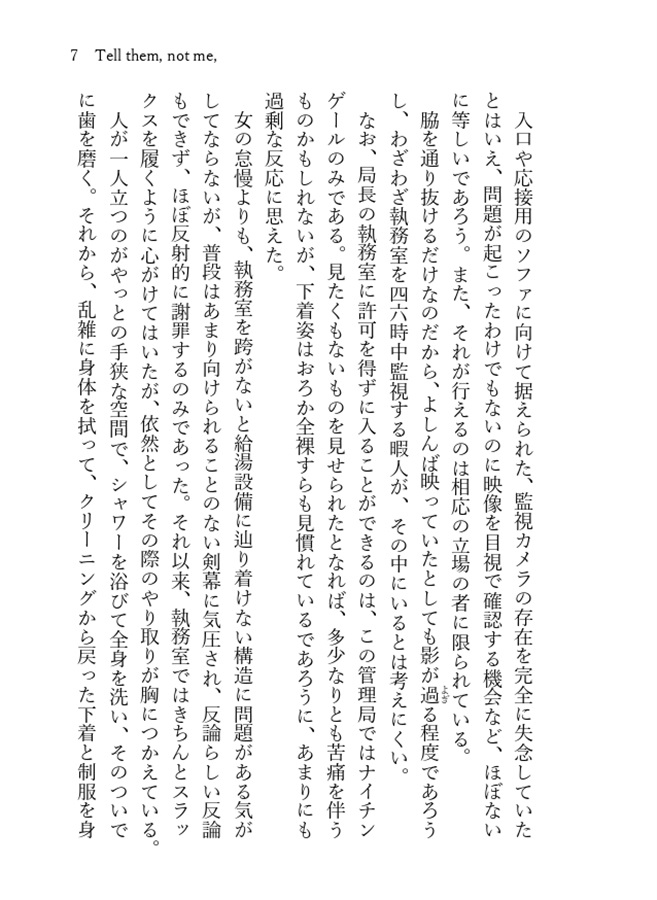 7 Tell them, not me,
入口や応接用のソファに向けて据えられた、監視カメラの存在を完全に失念していた
とはいえ、問題が起こったわけでもないのに映像を目視で確認する機会など、ほぼない
に等しいであろう。また、それが行えるのは相応の立場の者に限られている。
脇を通り抜けるだけなのだから、よしんば映っていたとしても影が過る程度であろう
よぎ
し、わざわざ執務室を四六時中監視する暇人が、その中にいるとは考えにくい。
なお、局長の執務室に許可を得ずに入ることができるのは、この管理局ではナイチン
ゲールのみである。見たくもないものを見せられたとなれば、多少なりとも苦痛を伴う
ものかもしれないが、下着姿はおろか全裸すらも見慣れているであろうに、あまりにも
過剰な反応に思えた。
女の怠慢よりも、執務室を跨がないと給湯設備に辿り着けない構造に問題がある気が
してならないが、普段はあまり向けられることのない剣幕に気圧され、反論らしい反論
もできず、ほぼ反射的に謝罪するのみであった。それ以来、執務室ではきちんとスラッ
クスを履くように心がけてはいたが、依然としてその際のやり取りが胸につかえている。
人が一人立つのがやっとの手狭な空間で、シャワーを浴びて全身を洗い、そのついで
に歯を磨く。それから、乱雑に身体を拭って、クリーニングから戻った下着と制服を身